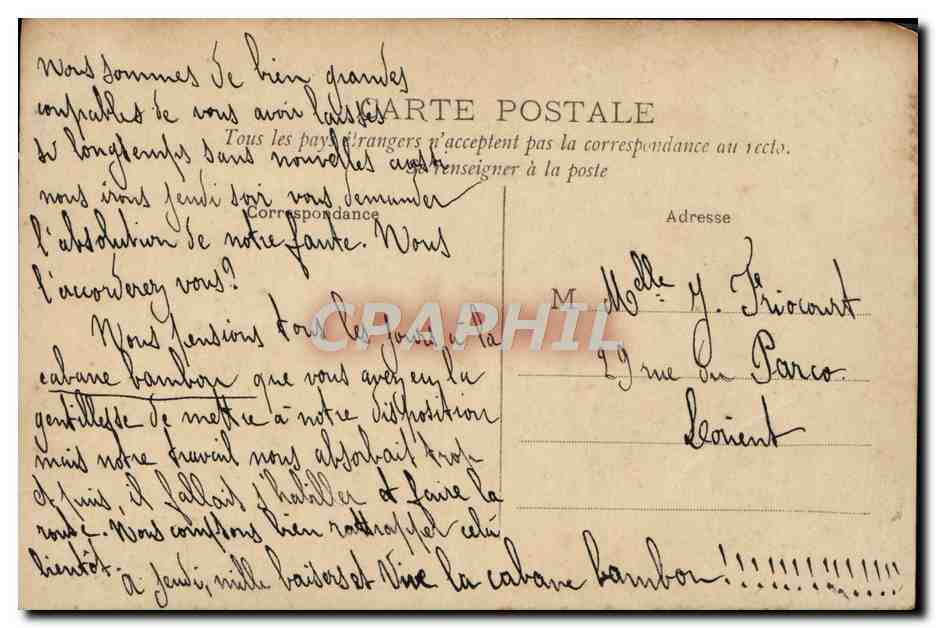 CARTE POSTALE
Tous les pays étrangers n'acceptent pas la correspondance au recto.
Se renseigner à la poste
Correspondance
Nous sommes de bien grandes
coupables de vous avoir laissés
si longtemps sans nouvelles aussi
nous irons jeudi soir vous demander
l'absolution de notre faute. Nous
l'accorderez vous?
Nous pensions tous les jours à la
cabane bambou que vous avez eu la
gentillesse de mettre à notre disposition
mais notre travail nous absorbait trop
et puis, il fallait s'habiller et faire la
route. Nous comptons bien rattrapper celà
bientôt.
A jeudi, mille baisers et Vive la cabane bambou!!!!!!!!!!!!!
Adresse
M Melle Y. Friocourt
29 rue du Parco
Lorient
CPARPHIL